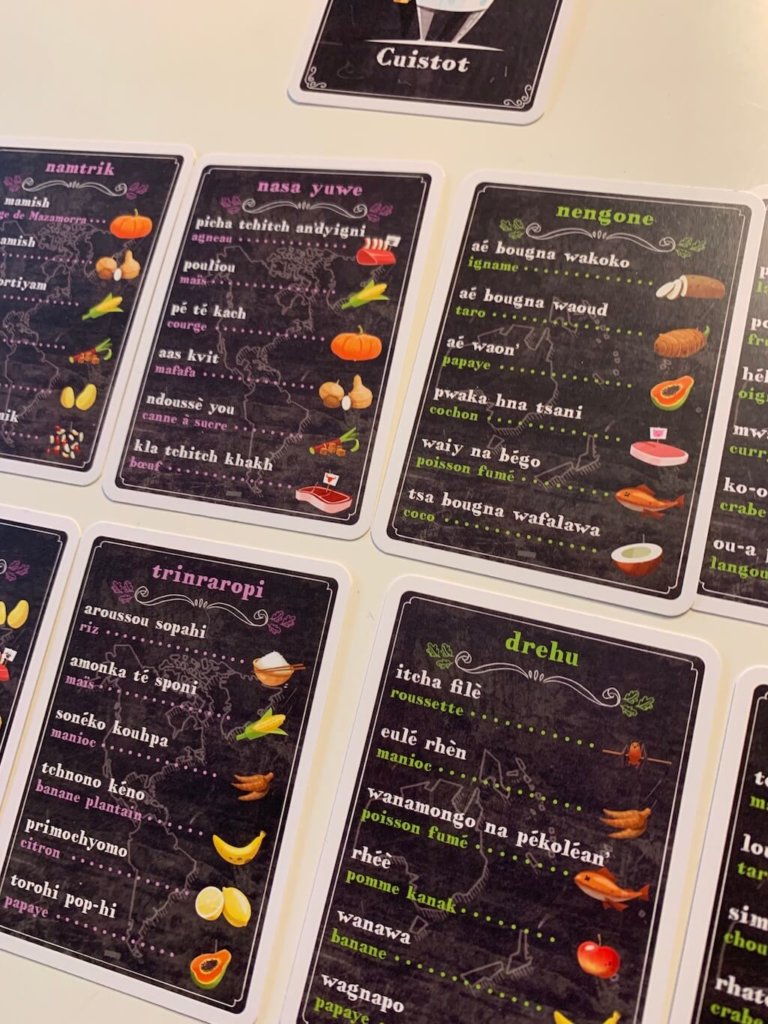 Cuistot
namtrik
mamish
ge de Mazamorra
amish
ortiyam
nik
nasa yuwe
picha tchitch andyigni
agneau
pouliou
maïs
pé té kach
courge
aas kvit
mafafa
ndoussè you
canne à sucre
kla tchitch khakh
bœuf
nengone
aé bougna wakoko
igname
aé bougna waoud
taro
aé waon'
papaye
pwaka hna tsani
cochon
waiy na bégo
poisson fumé
tsa bougna wafalawa
coco
hél
oig
mw
curr
ko-o
crabe
ou-a
langou
trinraropi
aroussou sopahi
riz
amonka té sponi
maïs
sonéko kouhpa
manioc
tchnono kéno
banane plantain
primochyomo
citron
torohi pop-hi
papaye
drehu
itcha filè
roussette
eulé rhèn
manioc
wanamongo na pékoléan'
poisson fumé
rhéè
pomme kanak
wanawa
banane
wagnapo
papaye
lou
tar
sim
chou
rhat
crab